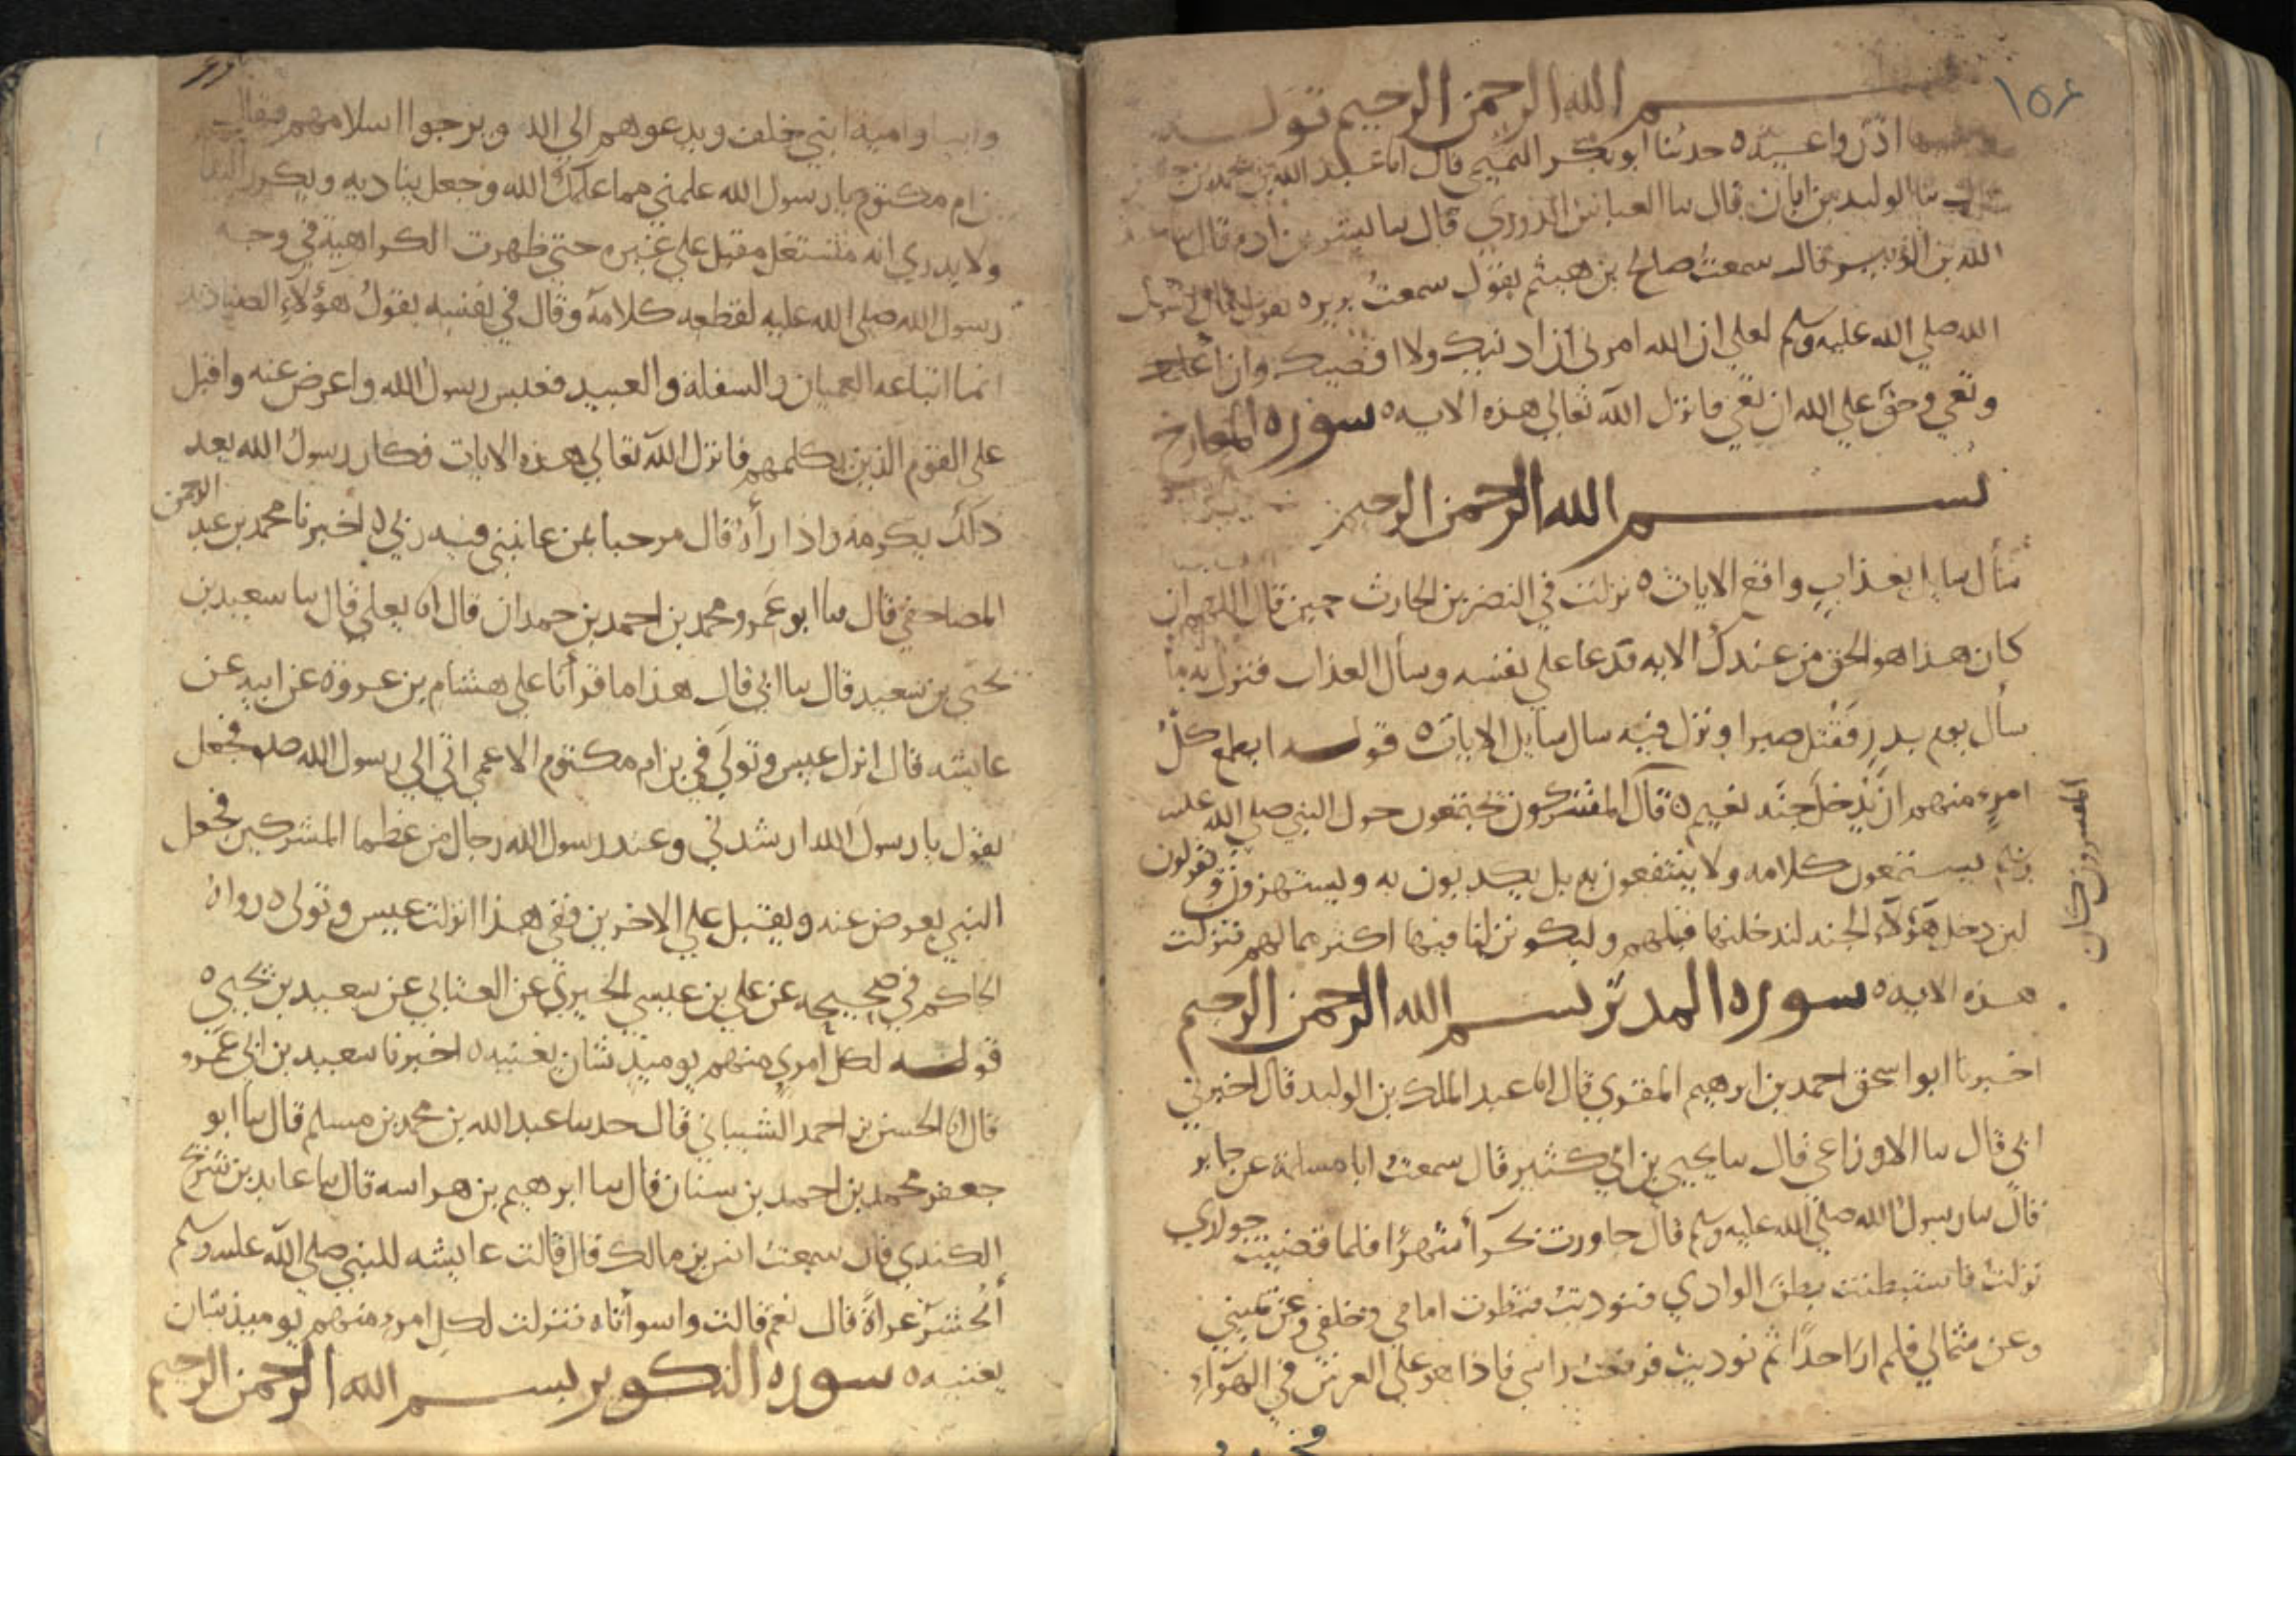 ١٥٤
بسم الله الرحمن الرحيم قوله
وتعيها اذن واعيه ه حدثنا ابو بكر التميمي قال انا عبد الله بن محمد بن
سا الوليد بن ابان قال سا العباس الدوري قال سا بشر بن ادم قال سا عبد
الله بن الزبير قال سمعت صالح بن هيثم يقول سمعت بريره يقول قال رسول
الله صلي الله عليه وسلم لعلي ان الله امرني ان ادنيك ولا اقصيك وان أعلمك
وتعي وحق علي الله ان تعي فانزل الله تعالي هذه الايه ه سوره المعارج
بسم الله الرحمن الرحيم
سأل سايل بعذاب واقع الايات ه نزلت في النضر بن الحارث حين قال اللهم ان
كان هذا هو الحق من عندك الايه فدعا علي نفسه وسأل العذاب فنزل به ما
سأل يوم بدر فقتل صبرا ونزل فيه سال سايل الايات ه قوله ايطمع كل
امرء منهم ان يدخل جنه نعيم ه قال المفسرون كان المشركون يجتمعون حول النبي صلي الله عليه
وسلم يستمعون كلامه ولا ينتفعون به بل يكذبون به ويستهزون ويقولون
لين دخل هؤلاء الجنه لندخلنها قبلهم وليكونن لنا فيها اكثر مما لهم فنزلت
هذه الايه ه سوره المدثر بسم الله الرحمن الرحيم
اخبرنا ابو اسحق احمد بن ابرهيم المقري قال انا عبد الملك بن الوليد قال اخبرني
ابي قال سا الاوزاعي قال سا يحيي بن ابي كثير قال سمعت ابا سلمة عن جابر
قال سا رسول الله صلي الله عليه وسلم قال جاورت بحرأ شهرا فلما قضيت جواري
نزلت فاستبطنت بطن الوادي فنوديت فنظرت امامي وخلفي وعن يميني
وعن شمالي فلم ار احدا ثم نوديت فرفعت راسي فاذا هو علي العرش في الهواء
وابيا واميه ابني خلف ويدعوهم الي الله ويرجوا اسلامهم فقال
بن ام مكتوم يا رسول الله علمني مما علمك الله وجعل يناديه ويكرر الندا
ولا يدري انه مشتغل مقبل علي غيره حتي ظهرت الكراهية في وجه
رسول الله صلي الله عليه لقطعه كلامه وقال في نفسه يقول هؤلاء الصناديد
انما اتباعه العميان والسفلة والعبيد فعبس رسول الله واعرض عنه واقبل
علي القوم الذين يكلمهم فانزل الله تعالي هذه الايات فكان رسول الله بعد
ذلك يكرمه واذا رأه قال مرحبا بمن عاتبني فيه ربي ه اخبرنا محمد بن عبد الرحمن
المصاحفي قال سا ابو عمرو محمد بن احمد بن حمدان قال انا ابو يعلي قال سا سعيد بن
يحيي بن سعيد قال سا ابي قال هذا ما قرأنا علي هشام بن عروة عن ابيه عن
عايشه قال انزل عبس وتولي في بن ام مكتوم الاعمي اتي الي رسول الله صلعم فجعل
يقول يا رسول الله ارشدني وعند رسول الله رجال من عظما المشركين فجعل
النبي يعرض عنه ويقبل علي الاخرين ففي هذا انزلت عبس وتولي ه رواه
الحاكم في صحيحه عن علي بن عيسي الحيري عن العتابي عن سعيد بن يحيي ه
قوله لكل امري منهم يوميذ شان يغنيه ه اخبرنا سعيد بن ابي عمرو
قال انا الحسن بن احمد الشيباني قال حدسا عبد الله بن محمد بن مسلم قال سا ابو
جعفر محمد بن احمد بن سنان قال سا ابرهيم بن هراسه قال سا عايد بن شريح
الكندي قال سمعت انس بن مالك قال قالت عايشه للنبي صلي الله عليه وسلم
أنحشر عراة قال نعم قالت واسوأتاه فنزلت لكل امرء منهم يوميذ شان
يغنيه ه سوره التكوير بسم الله الرحمن الرحيم